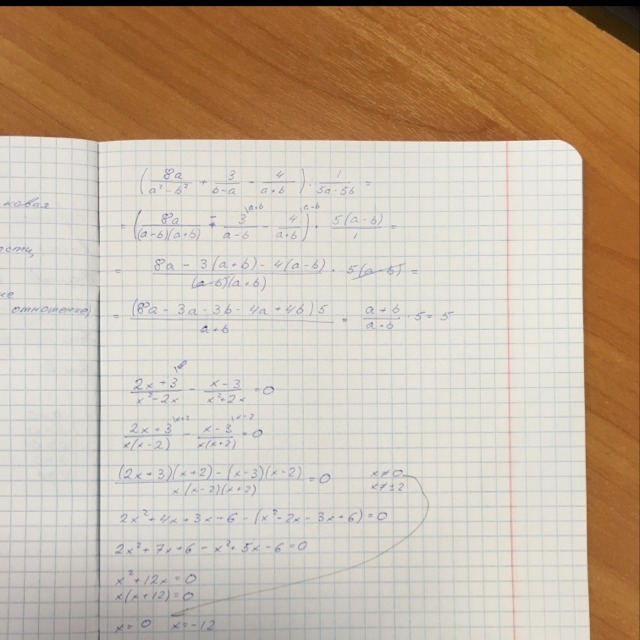 ковая
отношение)
( 8a/(a²-b²) + 3/(b-a) - 4/(a+b) ) : 1/(5a-5b) =
= ( 8a/((a-b)(a+b)) - 3^(a+b)/(a-b) - 4^(a-b)/(a+b) ) · 5(a-b)/1 =
= (8a - 3(a+b) - 4(a-b))/((a-b)(a+b)) · 5(a-b) =
= (8a - 3a - 3b - 4a + 4b) 5/(a+b) = (a+b)/(a+b) · 5 = 5
(2x+3)/(x²-2x) - (x-3)/(x²+2x) = 0
(2x+3)^(x+2)/(x(x-2)) - (x-3)^(x-2)/(x(x+2)) = 0
((2x+3)(x+2) - (x-3)(x-2))/(x(x-2)(x+2)) = 0 x≠0
x≠±2
2x²+4x+3x+6-(x²-2x-3x+6)=0
2x²+7x+6-x²+5x-6=0
x²+12x=0
x(x+12)=0
x=0 x=-12